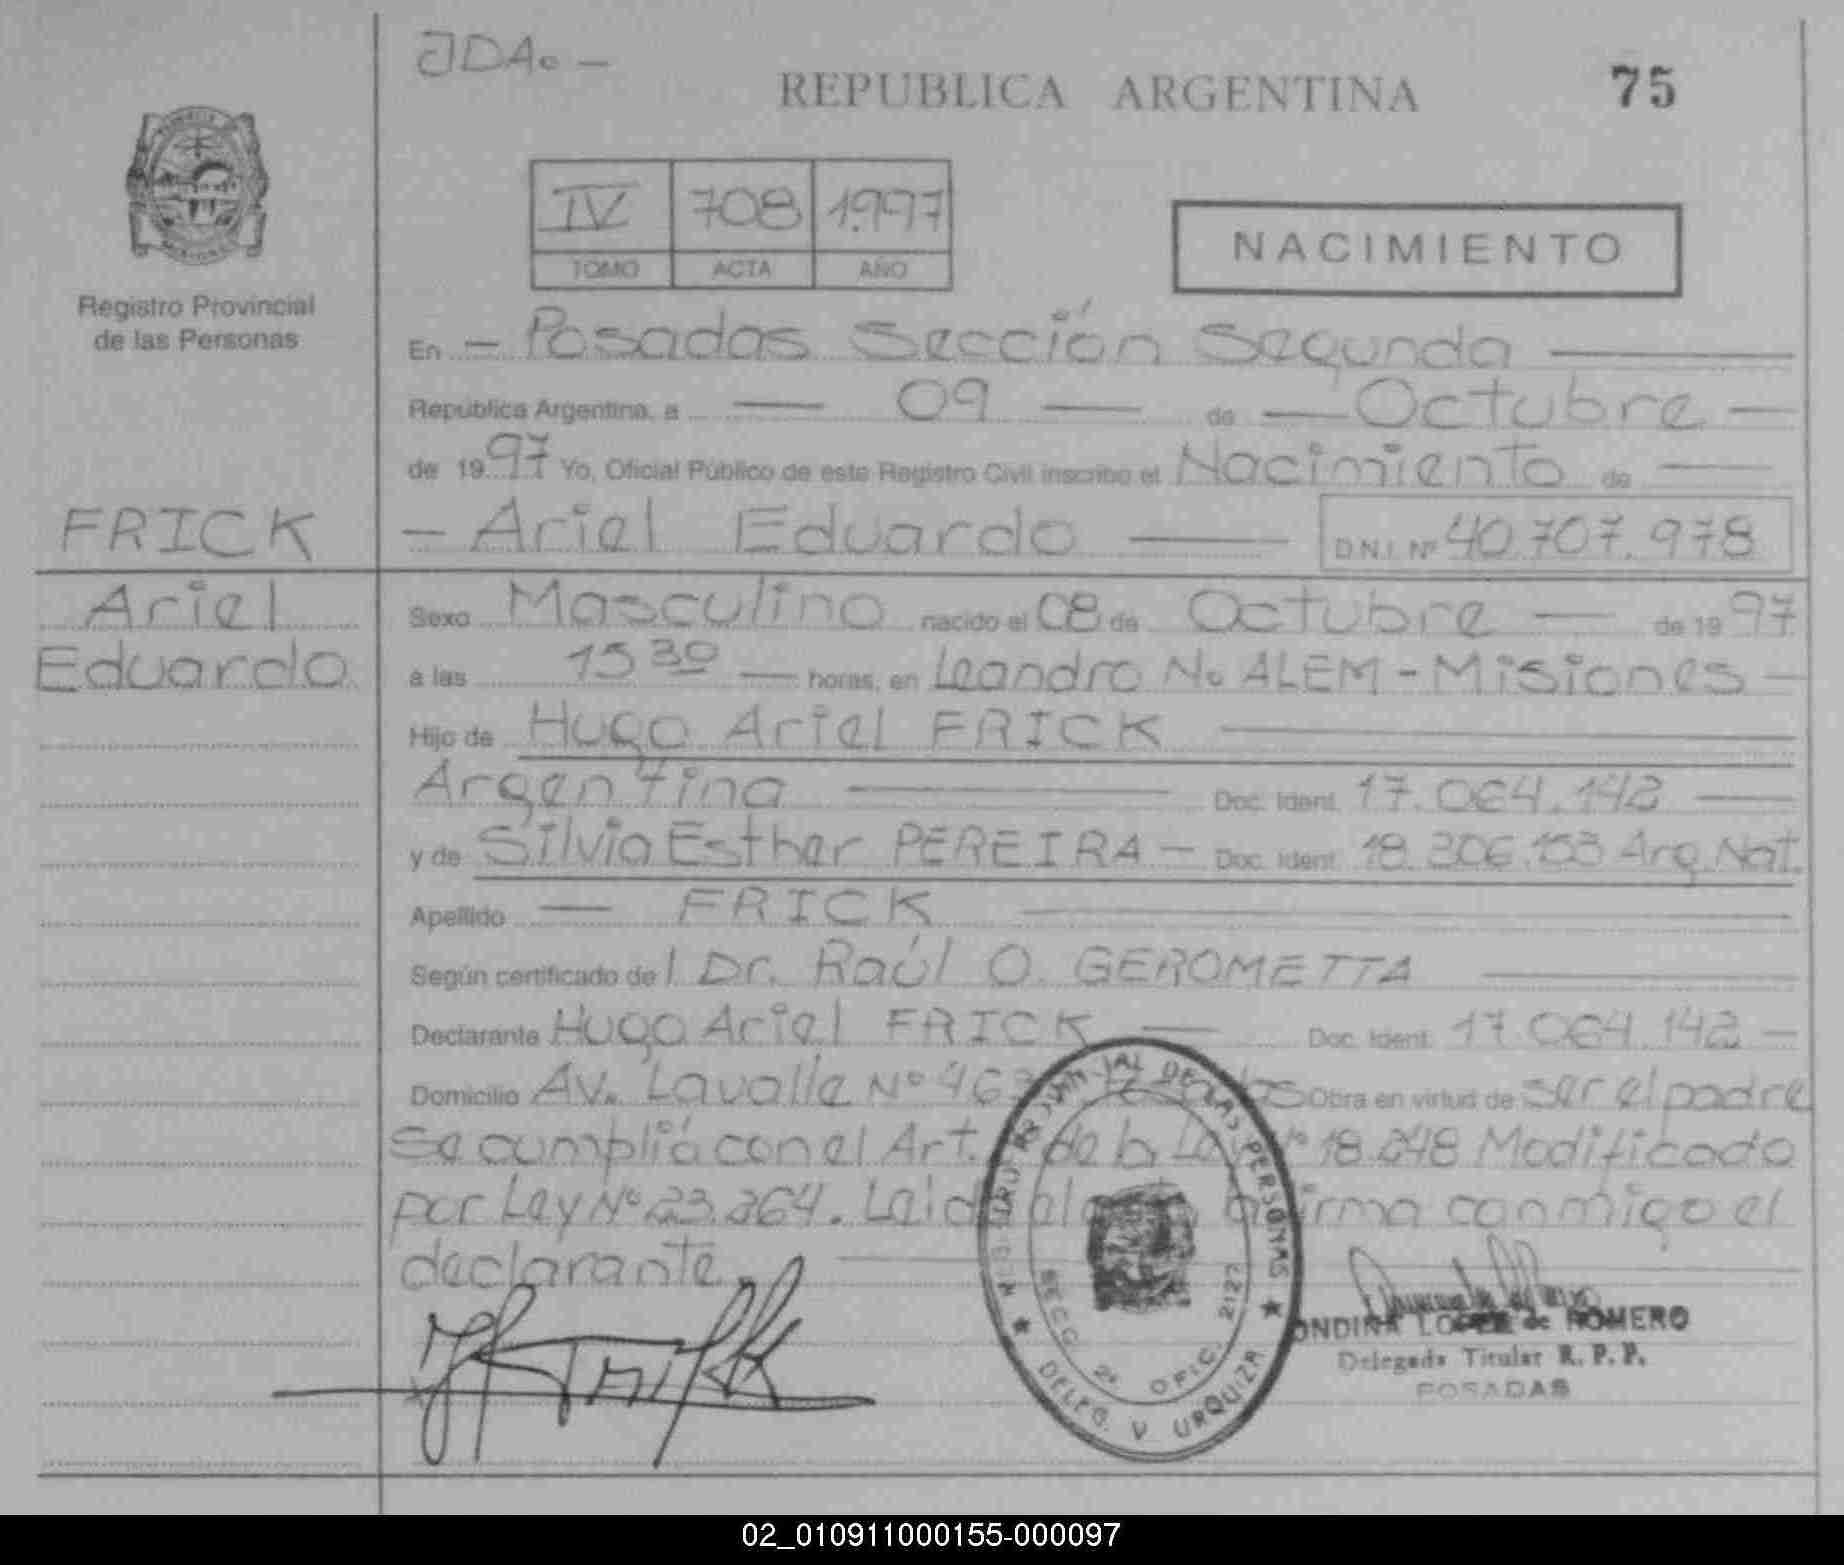 JDA. -
REPUBLICA ARGENTINA
75
IV 708 1.997
TOMO ACTA AÑO
NACIMIENTO
Registro Provincial
de las Personas
En - Posadas Sección Segunda
República Argentina, a 09 de Octubre
de 1997 Yo, Oficial Público de este Registro Civil inscribo el Nacimiento de
FRICK
- Ariel Eduardo D.N.I. Nº 40.707.978
Ariel
Eduardo
Sexo Masculino nacido el 08 de Octubre de 1997
a las 15 30 horas, en Leandro N. ALEM - Misiones
Hijo de Hugo Ariel FRICK
Argentina Doc. Ident. 17.064.142
y de Silvia Esther PEREIRA - Doc. Ident. 18.306.153 Arg. Nat.
Apellido FRICK
Según certificado de Dr. Raúl O. GEROMETTA
Declarante Hugo Ariel FRICK Doc. Ident. 17.064.142 -
Domicilio Av. Lavalle Nº Obra en virtud de ser el padre
Se cumplió con el Art. de la Nº 18.248 Modificado
por Ley Nº 23.264. firma conmigo el
declarante
REGISTRO PROVINCIAL DE LAS PERSONAS
SECC. 2ª OFIC. 2127
DELEG. V. URQUIZA
ONDINA LOPEZ de ROMERO
Delegada Titular R. P. P.
POSADAS
02_010911000155-000097